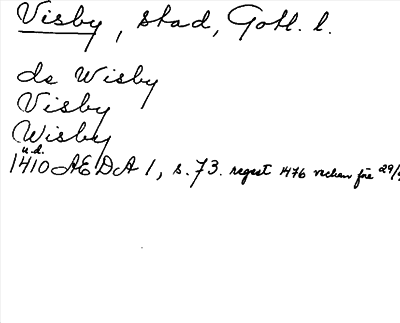 Visby, stad, Gotl. l.
de Wisby
Visby
Wisby
u.d.
1410 AEDA 1, s. 73. regest 1476 veckan före 29/